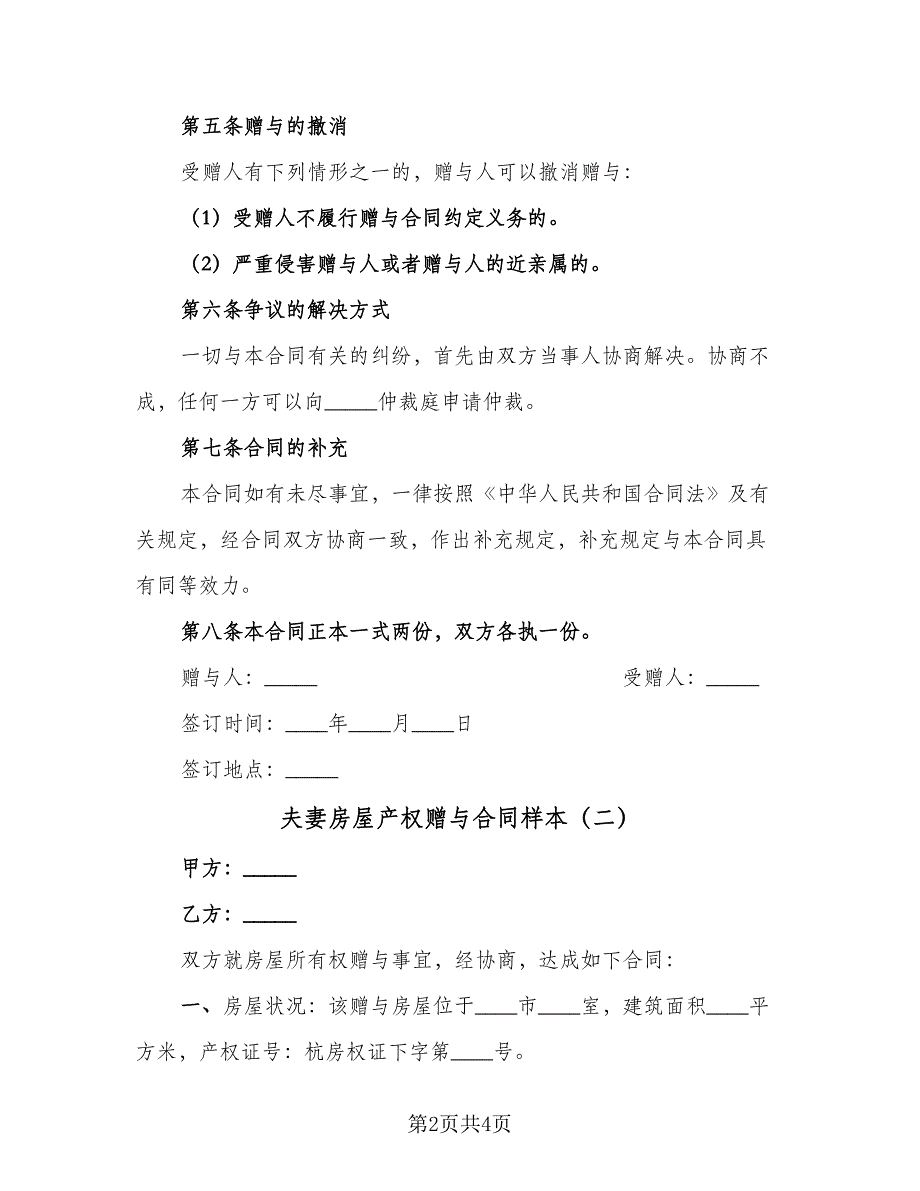 第五条赠与的撤消
受赠人有下列情形之一的，赠与人可以撤消赠与：
（1）受赠人不履行赠与合同约定义务的。
（2）严重侵害赠与人或者赠与人的近亲属的。
第六条争议的解决方式
一切与本合同有关的纠纷，首先由双方当事人协商解决。协商不
成，任何一方可以向_____仲裁庭申请仲裁。
第七条合同的补充
本合同如有未尽事宜，一律按照《中华人民共和国合同法》及有
关规定，经合同双方协商一致，作出补充规定，补充规定与本合同具
有同等效力。
第八条本合同正本一式两份，双方各执一份。
赠与人：_____ 受赠人：_____
签订时间：____年____月____日
签订地点：_____
夫妻房屋产权赠与合同样本（二）
甲方：_____
乙方：_____
双方就房屋所有权赠与事宜，经协商，达成如下合同：
一、房屋状况：该赠与房屋位于____市____室，建筑面积____平
方米，产权证号：杭房权证下字第____号。
第2页共4页